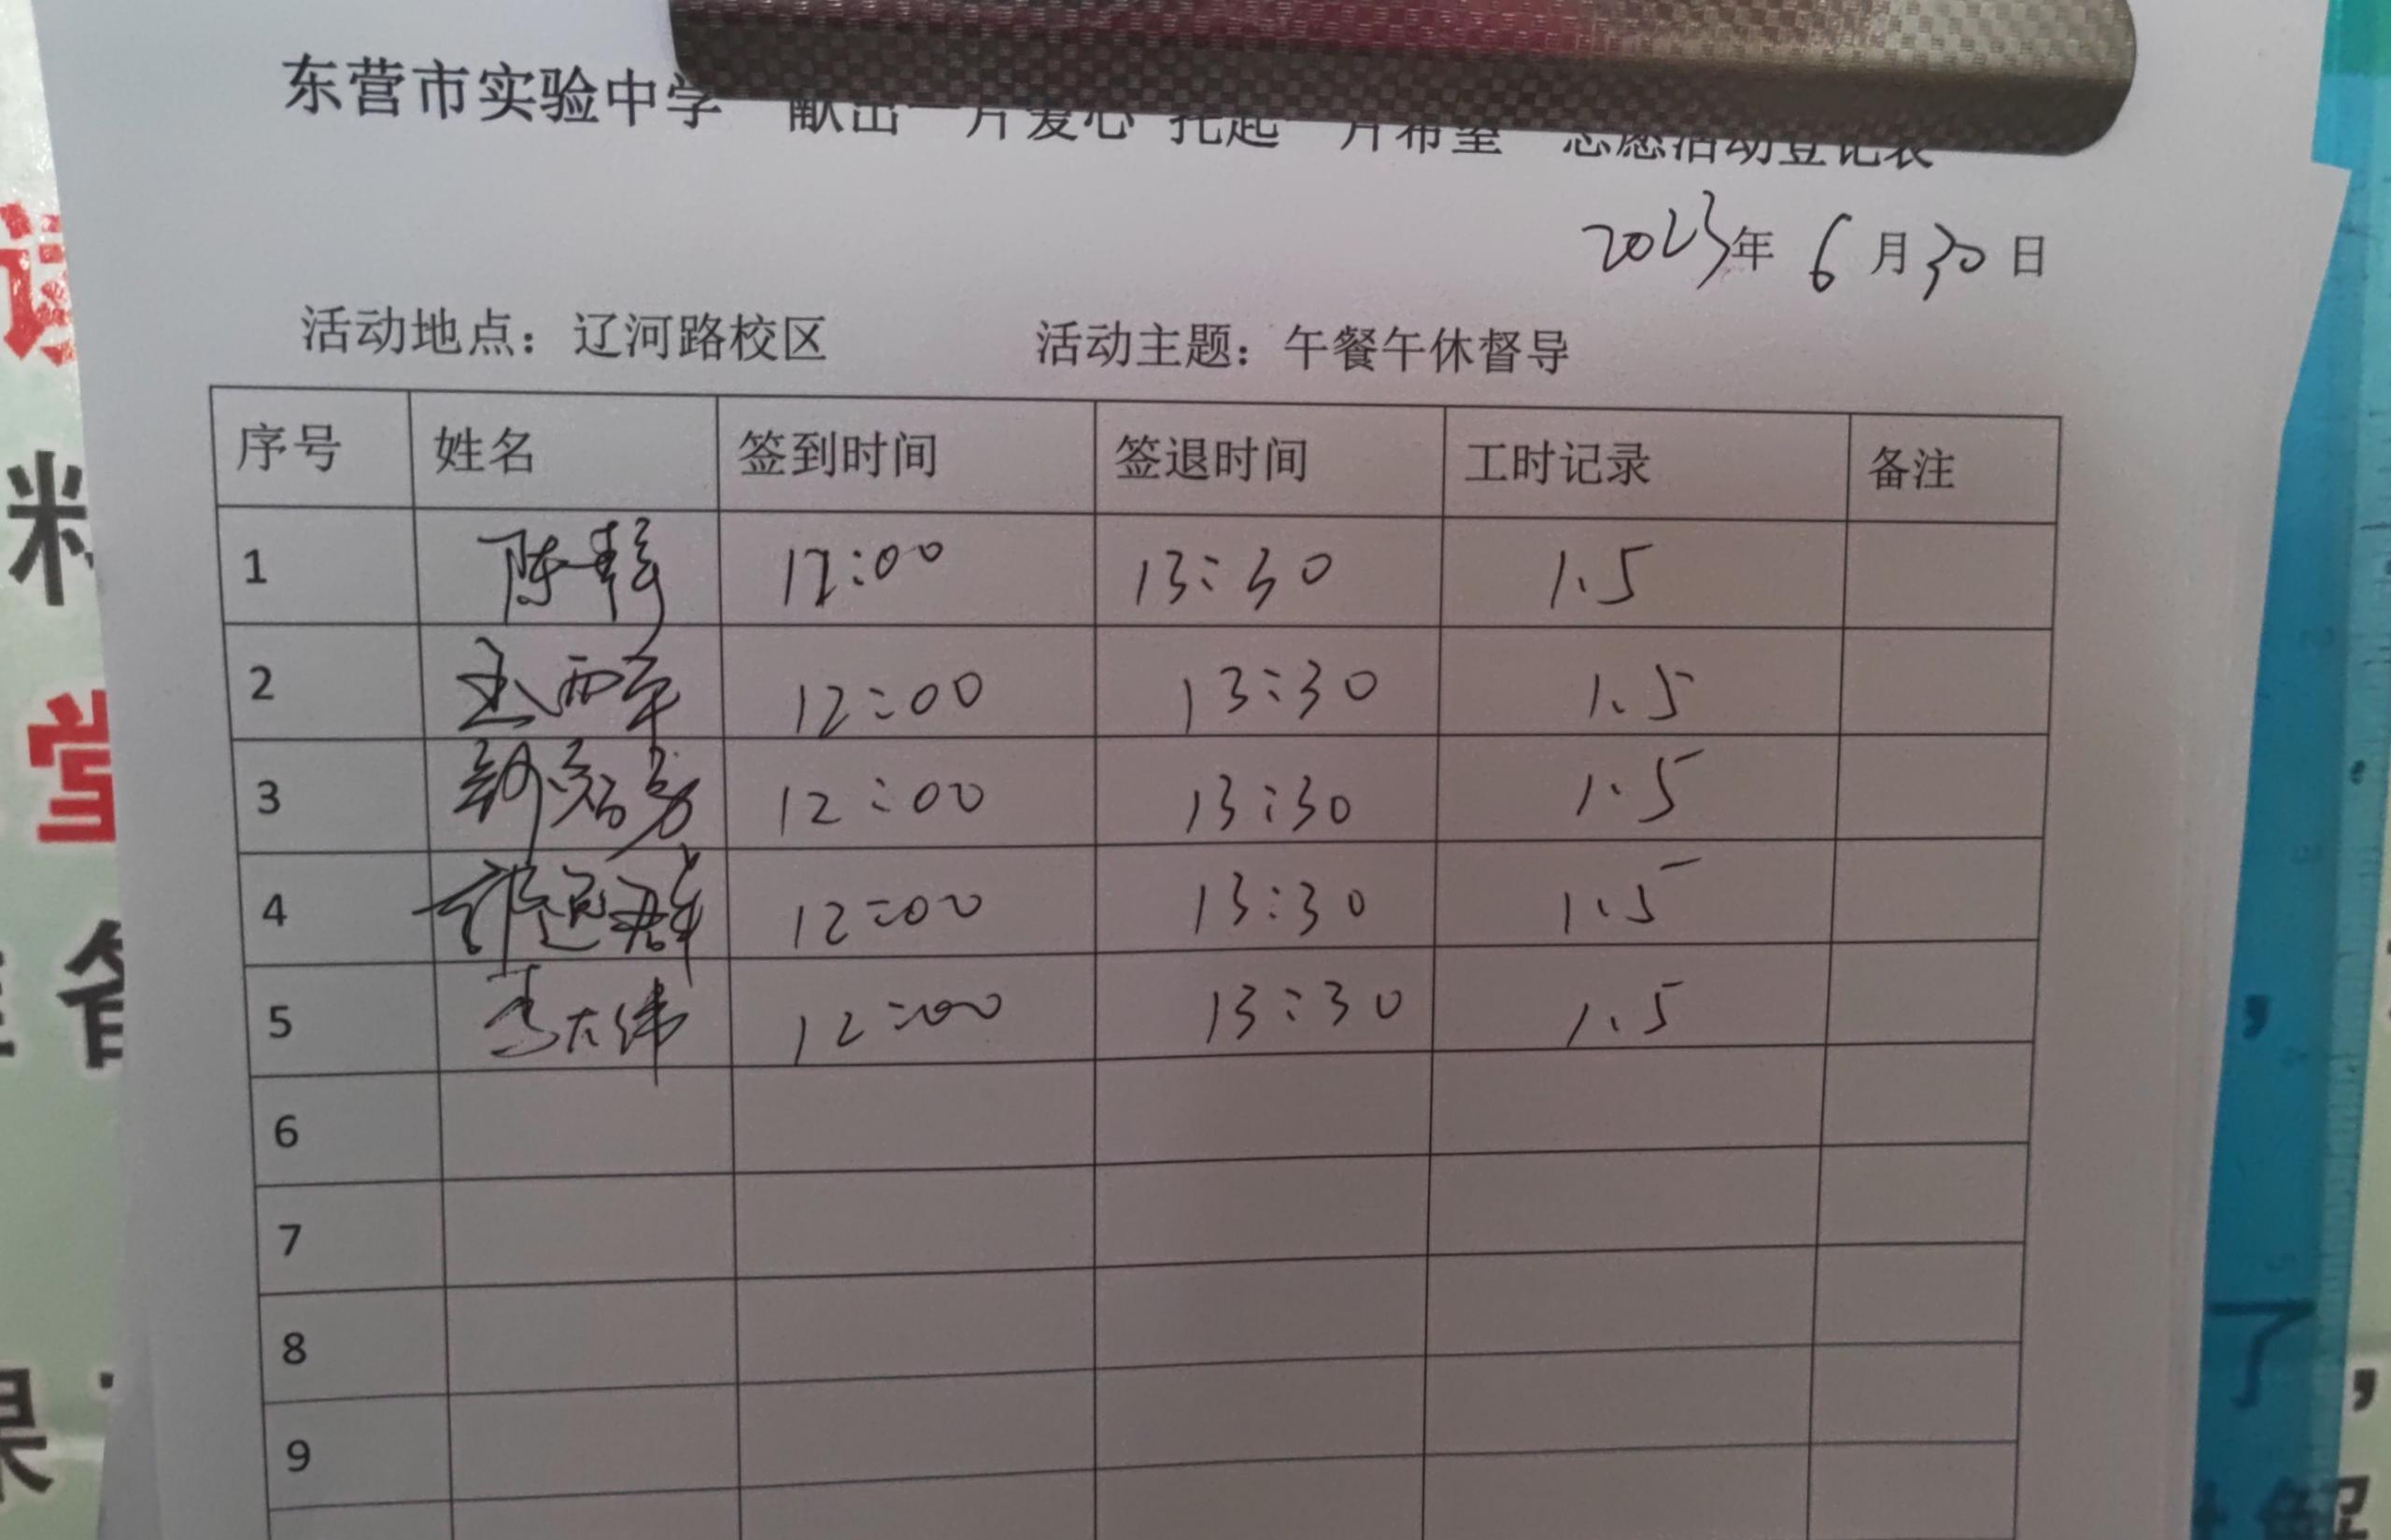 东营市实验中学 献出一片爱心 托起一片希望 志愿活动登记表
2023年 6 月 30 日
活动地点：辽河路校区 活动主题：午餐午休督导
序号 姓名 签到时间 签退时间 工时记录 备注
1 陈静 12:00 13:30 1.5
2 12:00 13:30 1.5
3 12:00 13:30 1.5
4 12:00 13:30 1.5
5 李大伟 12:00 13:30 1.5
6
7
8
9